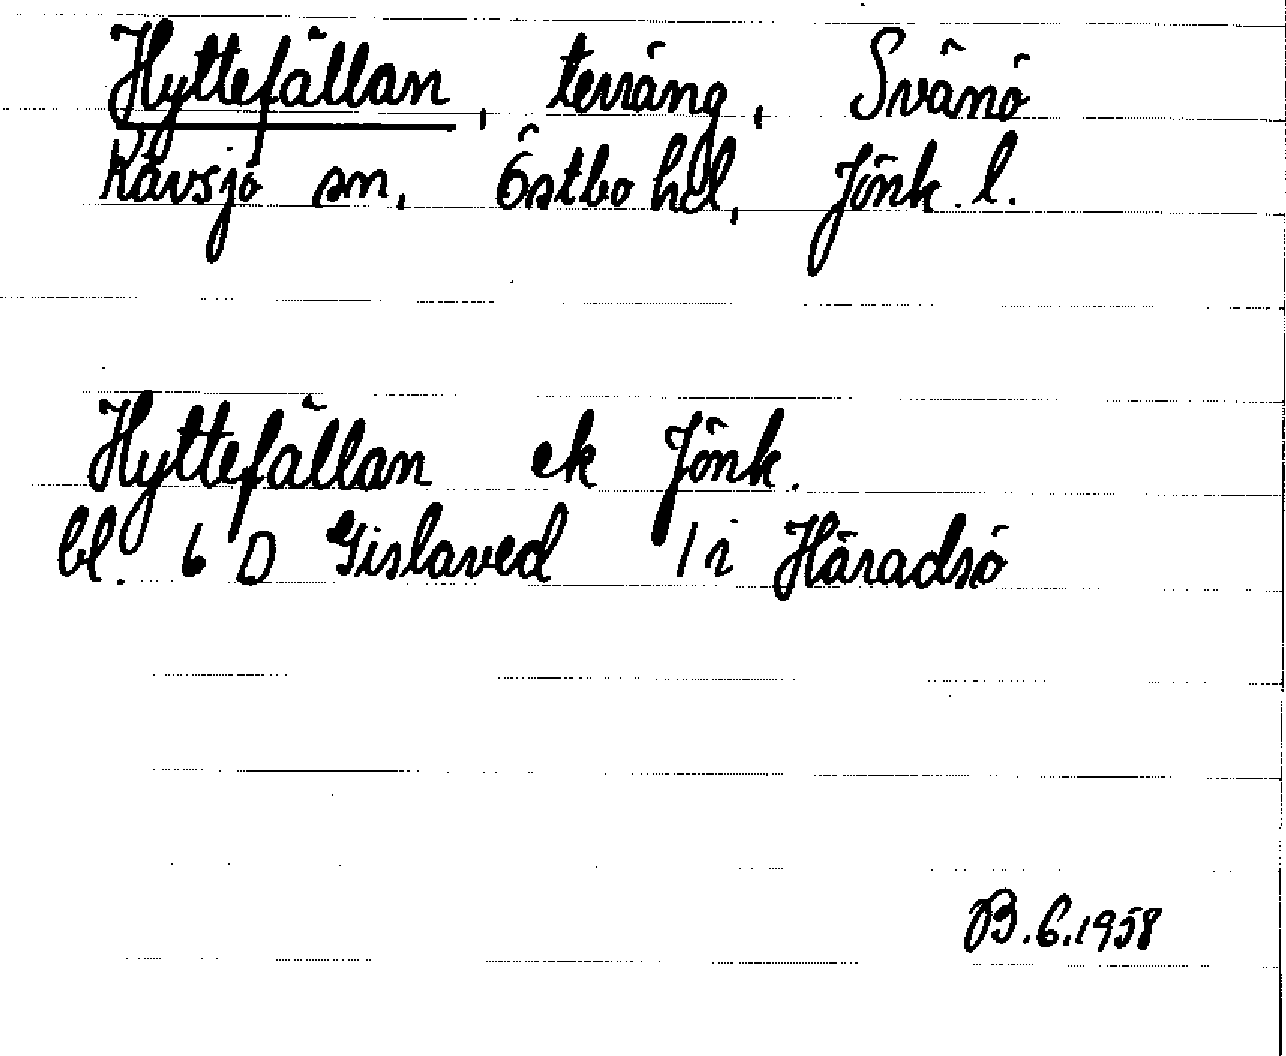 Hyttefällan, terräng, Svänö
Kävsjö sn, Östbo hd, Jönk. l.
Hyttefällan ek Jönk.
bl. 6 D Gislaved 1 i Häradsö
B.6.1958